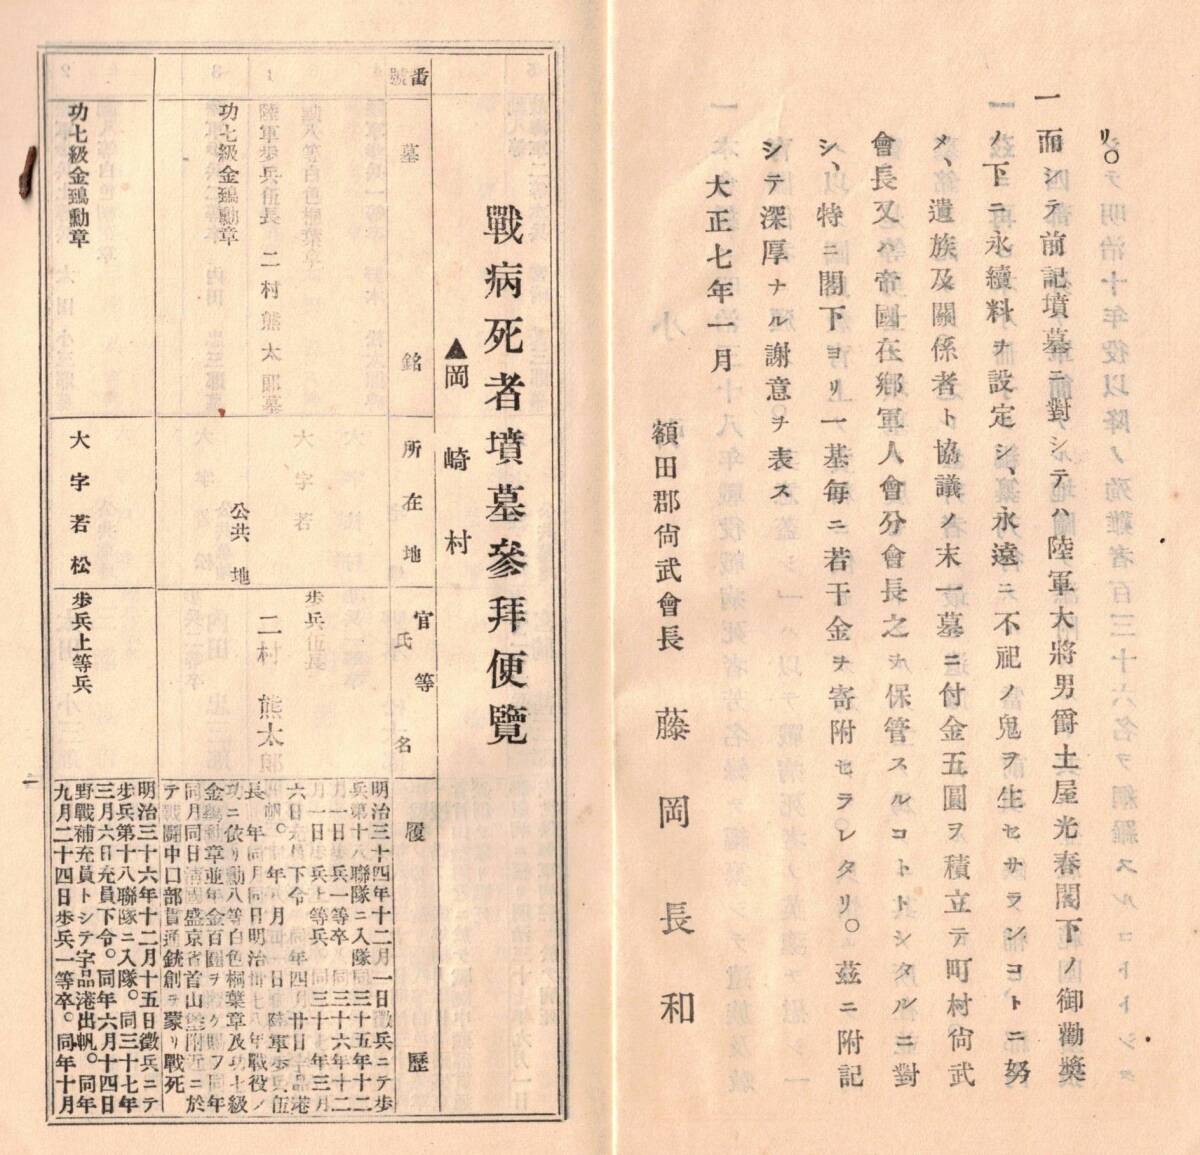 リ。
一 而シテ前記墳墓ニ對シテハ陸軍大將男爵土屋光春閣下ノ御勸奬
ノ下ニ永續料ヲ設定シ、永遠ニ不祀ノ鬼ヲ生セサラシコトニ努
メ、遺族及關係者ト協議ノ末一墓ニ付金五圓ヲ積立テ町村尙武
會長又ハ帝國在鄕軍人會分會長之カ保管スルコトトシタルニ對
シ、特ニ閣下ヨリ一基每ニ若干金ヲ寄附セラレタリ。茲ニ附記
シテ深厚ナル謝意ヲ表ス
大正七年一月
額田郡尙武會長 藤岡長和
戰病死者墳墓參拜便覽
▲岡崎村
番號 墓銘 所在地 官等氏名 履歷
1
陸軍步兵伍長 二村熊太郞墓
功七級金鵄勳章
勳八等白色桐葉章
大字若
公共地
步兵伍長
二村熊太郞
明治三十四年十二月一日徵兵ニテ步
兵第十八聯隊ニ入隊同三十五年十二
月一日步兵一等卒、同三十六年十二
月一日步兵上等兵、同三十七年三月
六日充員下令、同年四月廿日宇品港
出帆。同年 月 一日陸軍步兵伍
長 年同月同日明治卅七八年戰役ノ
功ニ依リ勳八等白色桐葉章及功七級
金鵄勳章並年金百圓ヲ賜フ同年
同月同日淸國盛京省首山堡附近ニ於
テ戰鬪中口部貫通銃創ヲ蒙リ戰死
2
功七級金鵄勳章
大字若松
步兵上等兵
明治三十六年十二月十五日徵兵ニテ
步兵第十八聯隊ニ入隊。同三十七年
三月六日充員下令。同年六月十四日
野戰補充員トシテ宇品港出帆。同年
九月二十四日步兵一等卒。同年十月
一